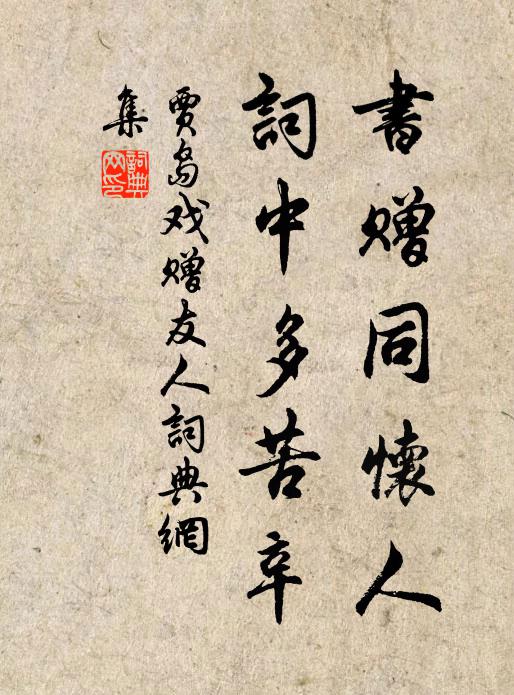 書贈同懷人
詞中多苦辛
賈島戏贈友人詞典網
集
詞典
网印